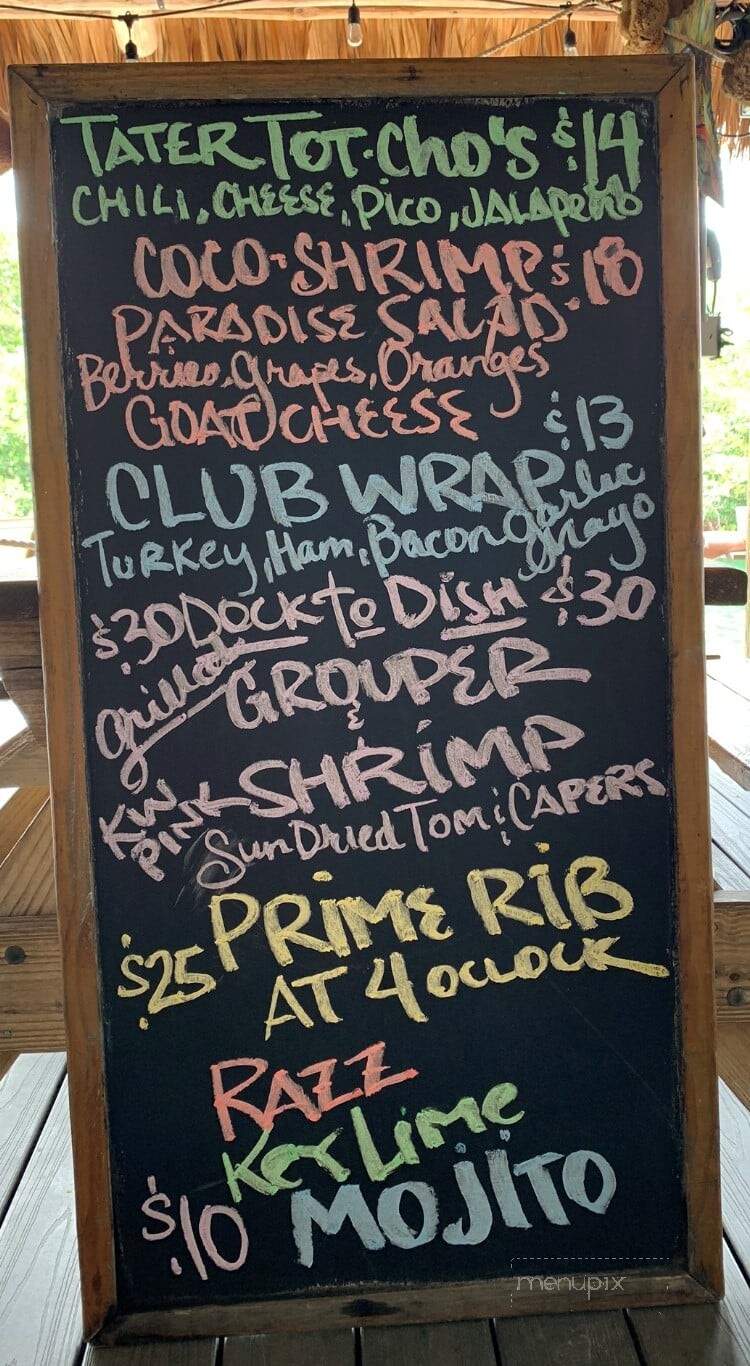 TATER TOT·Cho's $14
CHILI, CHEESE, PICO, JALAPEÑO
COCO-SHRIMP $18
PARADISE SALAD
Berries, Grapes, Oranges
GOAT CHEESE
$13
CLUB WRAP
Turkey, Ham, Bacon Garlic Mayo
$30 Dock to DISH $30
Grilled GROUPER
&
KW PINK SHRIMP
SunDried Tom & CAPERS
PRIME RIB
$25 AT 4 OCLOCK
RAZZ
Key Lime
$10 MOJITO
menupix